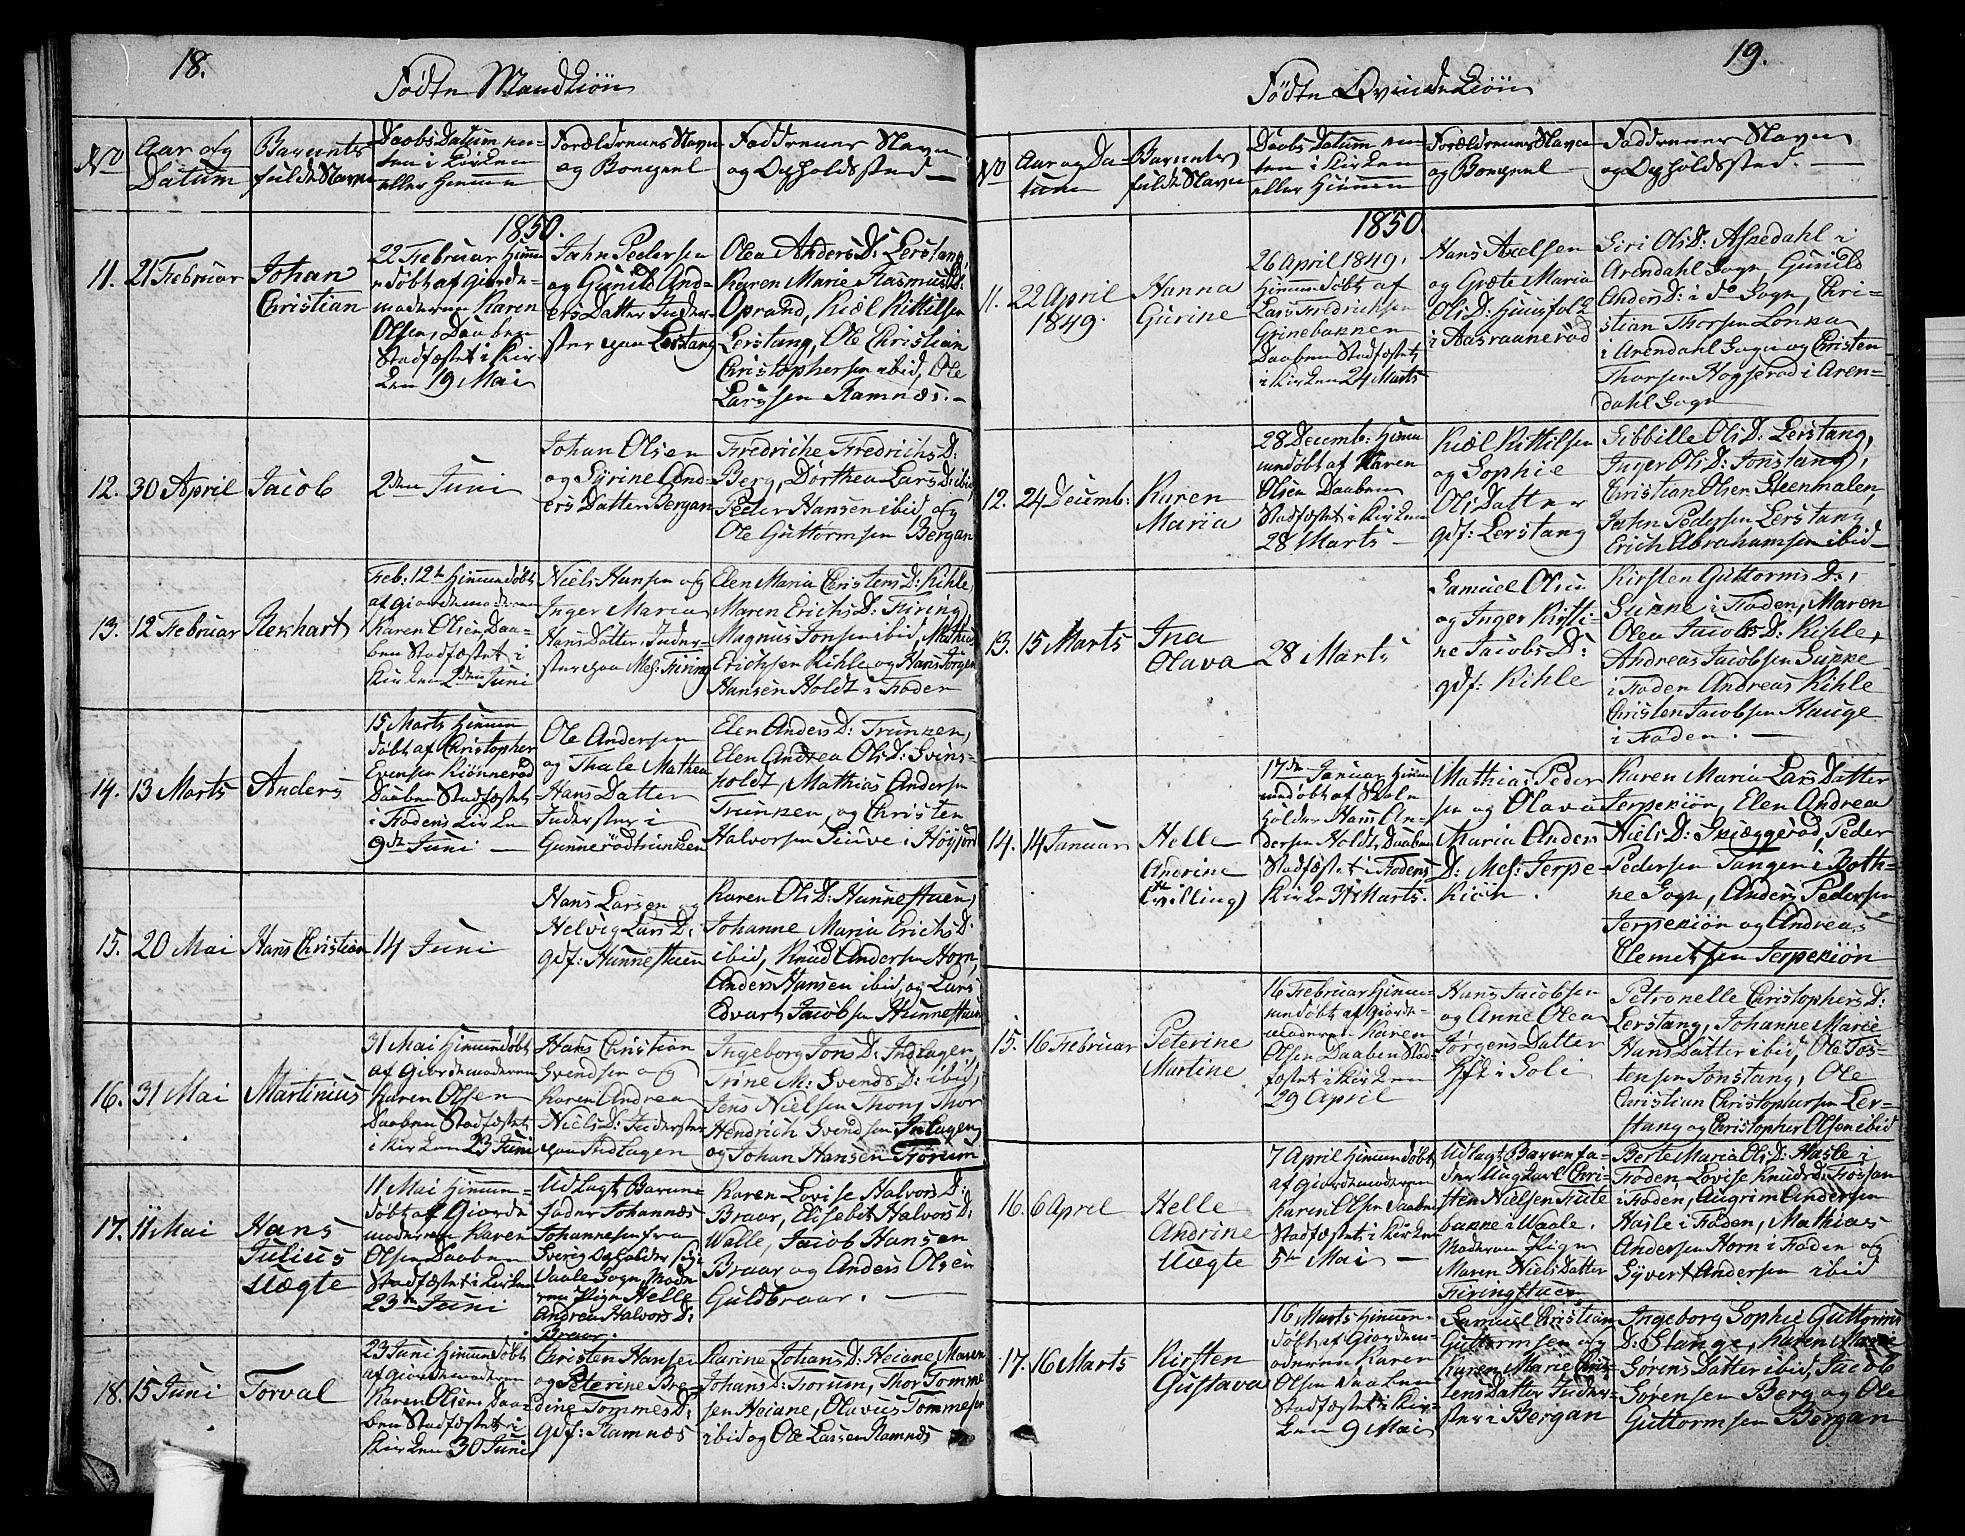 18.
Fødte Mandkiøn
No
Aar og
Datum
Barnets
fulde Navn
Daabs Datum en-
ten i Kirken
eller Hiemme
Forældrenes Navn
og Bonæpel
Faddrenes Navn
og Opholdssted
1850.
11.
21 Februar
Johan
Christian
22 Februar Hiem
døbt af Giorde-
moderen Karen
Olsen, Daaben
Stadfæstet i Kir
ken 19 Mai
Jahn Pedersen
og Gunild And-
ers Datter Inder-
ster paa Lerstang
Olea Anders D: Lerstang,
Karen Marie Rasmus D:
Oprand, Kiøl Kittilsen
Lerstang, Ole Christian
Christophersen ibid, Ole
Larssen Ramnæs.
12.
30 April
Jacob
2den Juni
Johan Olsen
og Syrine And-
ers Datter Bergan
Fredriche Fredrichs D:
Berg, Dorthea Lars D: ibid
Peder Hansen ibid og
Ole Guttormsen Bergan
13.
12 Februar
Rekhart
Feb: 12te Hiemmedøbt
af Giordemoderen
Karen Olsen, Daa-
ben Stadfæstet i
Kirken 2den Juni
Niels Hansen og
Inger Maria
Hans Datter, Inder-
ster paa Mel: Firing
Elen Maria Christens D: Kihle,
Maren Erichs D: Firing,
Magnus Jonsen ibid, Mathias
Erichsen Kihle og Hans Jørgen
Hansen Holdt i Foden
14.
13 Marts
Anders
15 Marts Hiemme
døbt af Christopher
Evensen Kiønnerød
Daaben Stadfæstet
i Fodens Kirke
9de Juni
Ole Andersen
og Thale Mathea
Hans Datter
Inderster i
Gunnerødtrunken
Elen Anders D: Trunken,
Elen Andrea Ols D: Svins-
holdt, Mathias Andersen
Trunken, og Christen
Halvorsen Siuve i Høyjord
15.
20 Mai
Hans Christian
14 Juni
Hans Larsen og
Helvig Lars D:
gdf: Hunnestuen
Karen Ols D: Hunnestuen,
Johanne Maria Erichs D:
ibid, Knud Andersen Horn,
Anders Hansen ibid, og Lars
Edvart Jacobsen Hunnestuen
16.
31 Mai
Martinius
31 Mai Hiemmedøbt
af Giordemoderen
Karen Olsen
Daaben Stadfæstet
i Kirken 23 Juni
Hans Christian
Svendsen og
Karen Andrea
Niels D: Inderster
paa Indlagen
Ingeborg Jons D: Indlagen,
Trine M: Svends D: ibid,
Jens Nielsen Thon, Thor
Hendrich Svendsen Inlagen,
og Johan Hansen Frorum
17.
11 Mai
Hans
Julius
Uægte
11 Mai Hiemme-
døbt af Giorde
moderen Karen
Olsen Daaben
Stadfæstet i Kirken
23de Juni
Udlagt Barne-
fader Johannes
Johannesen fra
Sverig Opholder sig i
Vaale Sogn, Mode-
ren Pigen Helle
Andrea Halvors D:
Braar.
Karen Lovise Halvors D:
Braar, Elisebet Halvors D:
Walle, Jacob Hansen
Braar og Anders Olsen
Guldbraar.
18.
15 Juni
Torval
23 Juni Hiemmedøbt
af Giordemoderen
Karen Olsens Daa-
ben Stadfæstet i
Kirken 30 Juni
Christen Hansen
og Peterine Bre-
dine Tommes D:
gdf: Ramnæs
Karine Johans D: Heiane, Maren
Johans D: Frorum, Thor Tomme
sen Heiane, Olavus Tommesen
ibid og Ole Larsen Ramnæs
19.
Fødte Qvindekiøn
No
Aar og Da-
tum
Barnets
fulde Navn
Daabs Datum en-
ten i Kirken
eller Hiemme
Forældrenes Navn
og Bonæpel
Faddrenes Navn
og Opholdssted.
1850.
11.
22 April
1849.
Hanna
Gurine
26 April 1849.
Hiemmedøbt af
Lars Fredrichsen
Grinebakken
Daaben Stadfæstet
i Kirken 24 Marts
Hans Axelsen
og Grete Maria
Ols D: Huusfolk
i Aasraanerød
Siri Ols D: Aspedahl i
Arendahl Sogn, Gunild
Anders D: i do Sogn, Chri-
stian Thorsen Lonka
i Arendahl Sogn og Christen
Thorsen Hogserød i Aren-
dahl Sogn
12.
24 Decemb:
Karen
Maria
28 Decemb: Hiem
medøbt af Karen
Olsen Daaben
Stadfæstet i Kirken
28 Marts
Kiæl Kittilsen
og Sophie
Ols Datter
gdf: Lerstang
Sibbille Ols D: Lerstang,
Inger Ols D: Jonstang,
Christian Olsen Steenmalen,
Jahn Pedersen Lerstang
Erich Abrahamsen ibid
13.
15 Marts
Ina
Olava
28 Marts
Samuel Olsen
og Inger Kirsti-
ne Jacobs D:
gdf: Kihle
Kirsten Guttorms D:,
Sukke i Foden, Maren
Olea Jacobs D: Kihle,
Andreas Jacobsen Sukke
i Foden Andreas Kihle
Christen Jacobsen Hauge
i Foden.
14.
14 Januar
Helle
Andrine
(tvilling)
17de Januar Hiem
medøbt af Skole
holder Hans An-
dersen Holdt, Daaben
Stadfæstet i Fodens
Kirke 31te Marts.
Mathias Peder
sen og Olava
Maria Anders
D: Mel: Jerpe
kiøn.
Karen Maria Lars Datter
Jerpekiøn, Elen Andrea
Niels D: Skiæggerød, Peder
Pedersen Tangen i Both-
ne Sogn, Anders Pedersen
Jerpekiøn og Andreas
Clemetsen Jerpekiøn
15.
16 Februar
Peterine
Martine
16 Februar Hiem-
medøbt af Giorde-
moderen Karen
Olsen Daaben Stad-
fæstet i Kirken
29 April
Hans Jacobsen
og Anne Olea
Jørgens Datter
Hft i Soli
Petronelle Christophers D:
Lerstang, Johanne Marie
Hans Datter ibid, Ole Tos-
tensen Jonstang, Ole
Christian Christophersen Ler-
stang og Christopher Olsen ibid
16.
6 April
Helle
Andrine
Uægte
7 April Hiemmedøbt
af Giordemoderen
Karen Olsen Daaben
Stadfæstet i Kirken
5te Mai
Udlagt Barnefa-
der Ung Karl Chri-
sten Nielsen Rute
bakke i Waale.
Moderen Pigen
Maren Niels Datter
Firingstuen.
Berte Maria Ols D: Hasle i
Foden, Lovise Knuds D: Fossan
i Foden, Augrim Andersen
Hasle i Foden, Mathias
Andersen Horn i Foden og
Syvert Andersen ibid
17.
16 Marts
Kirsten
Gustava
16 Marts Hiemme-
døbt af Giordem-
oderen Karen
Olsen Daaben
Stadfæstet i Kir-
ken 9 Mai
Samuel Christian
Guttormsen og
Karen Marie Chris-
tens Datter Inder-
ster i Bergan
Ingeborg Sophie Guttorms
D: Stange, Karen Marie
Sørens Datter ibid, Jacob
Sørensen Berg og Ole
Guttormsen Bergan